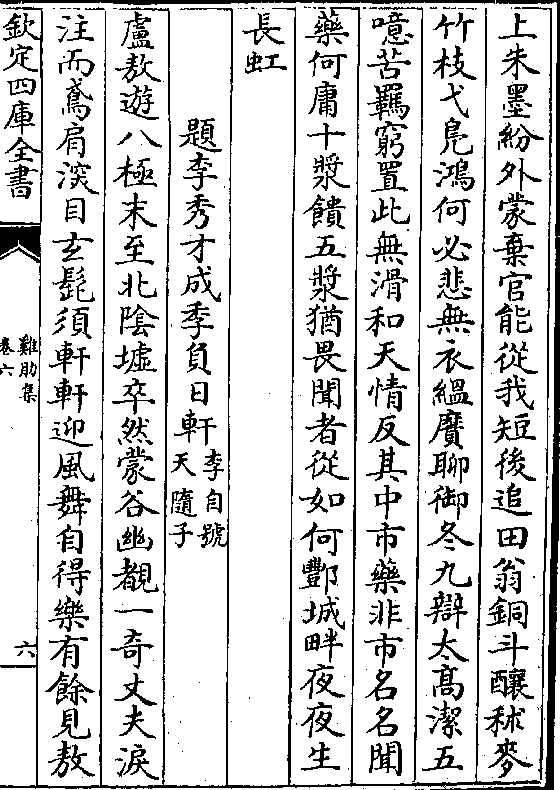 上朱墨紛外蒙棄官能從我短後追田翁銅斗釀秫麥
竹枝弋鳧鴻何必悲無衣縕黂聊御冬九辯太高潔五
噫苦羈窮置此無滑和天情反其中市藥非市名名聞
藥何庸十漿饋五漿猶畏聞者從如何酆城畔夜夜生
長虹
題李秀才成季負日軒李自號天隨子
盧敖遊八極末至北陰墟卒然蒙谷幽覩一奇丈夫淚
注而鳶肩深目玄髭須軒軒迎風舞自得樂有餘見敖
欽定四庫全書
雞肋集
卷六
六